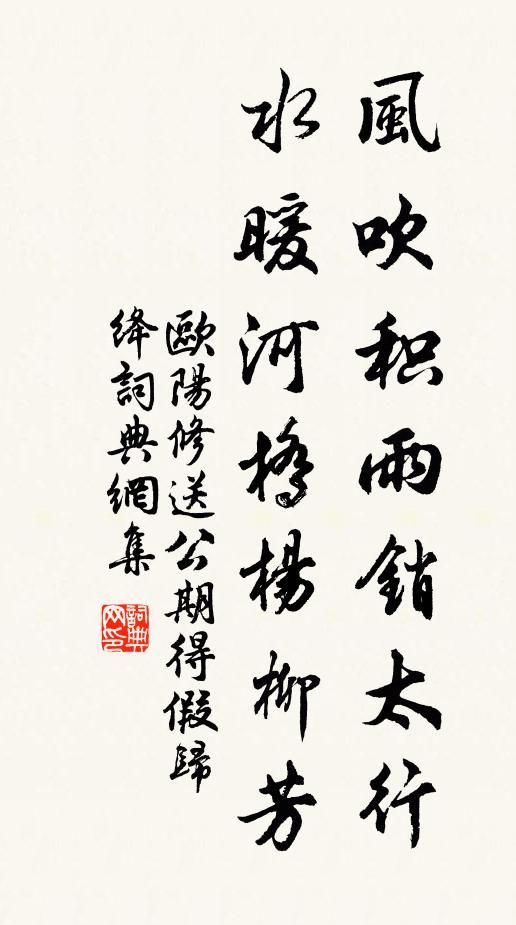 風吹积雨銷太行
水暖河橋楊柳芳
歐陽修送公期得假歸
绛詞典網集
詞典网印